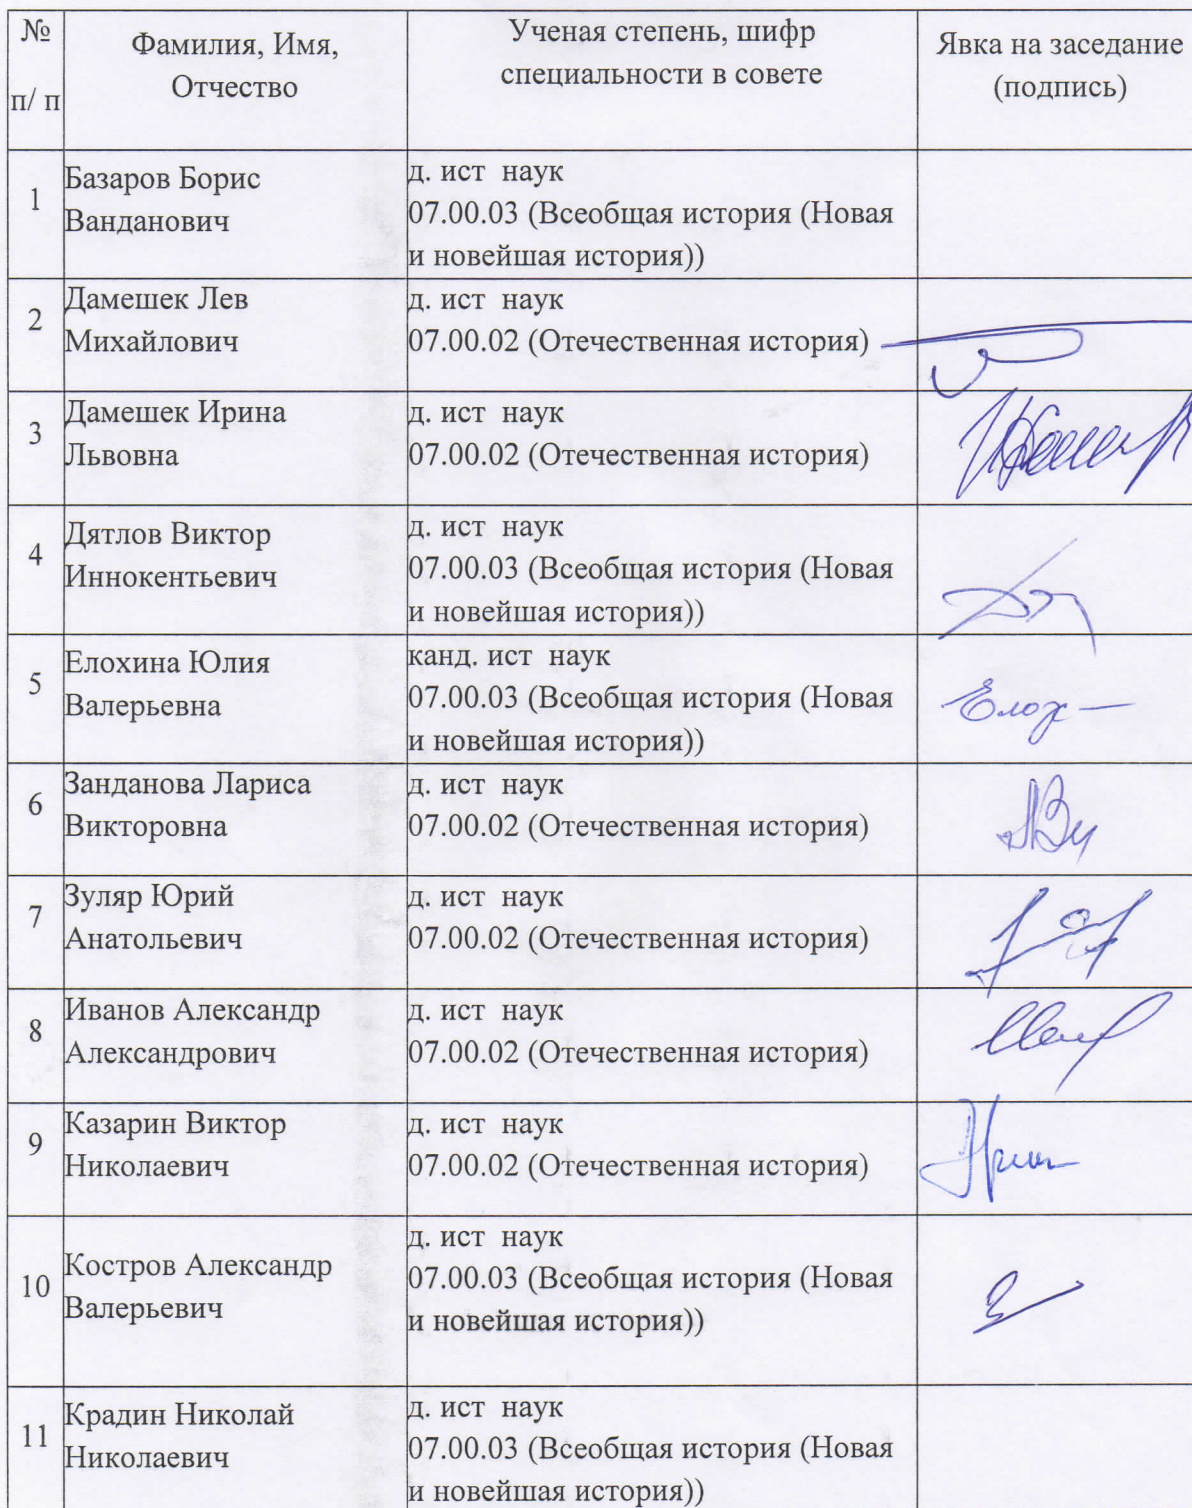 №
п/ п
Фамилия, Имя,
Отчество
Ученая степень, шифр
специальности в совете
Явка на заседание
(подпись)
1
Базаров Борис
Ванданович
д. ист наук
07.00.03 (Всеобщая история (Новая
и новейшая история))
2
Дамешек Лев
Михайлович
д. ист наук
07.00.02 (Отечественная история)
3
Дамешек Ирина
Львовна
д. ист наук
07.00.02 (Отечественная история)
4
Дятлов Виктор
Иннокентьевич
д. ист наук
07.00.03 (Всеобщая история (Новая
и новейшая история))
5
Елохина Юлия
Валерьевна
канд. ист наук
07.00.03 (Всеобщая история (Новая
и новейшая история))
Елох
6
Занданова Лариса
Викторовна
д. ист наук
07.00.02 (Отечественная история)
7
Зуляр Юрий
Анатольевич
д. ист наук
07.00.02 (Отечественная история)
8
Иванов Александр
Александрович
д. ист наук
07.00.02 (Отечественная история)
9
Казарин Виктор
Николаевич
д. ист наук
07.00.02 (Отечественная история)
10
Костров Александр
Валерьевич
д. ист наук
07.00.03 (Всеобщая история (Новая
и новейшая история))
11
Крадин Николай
Николаевич
д. ист наук
07.00.03 (Всеобщая история (Новая
и новейшая история))